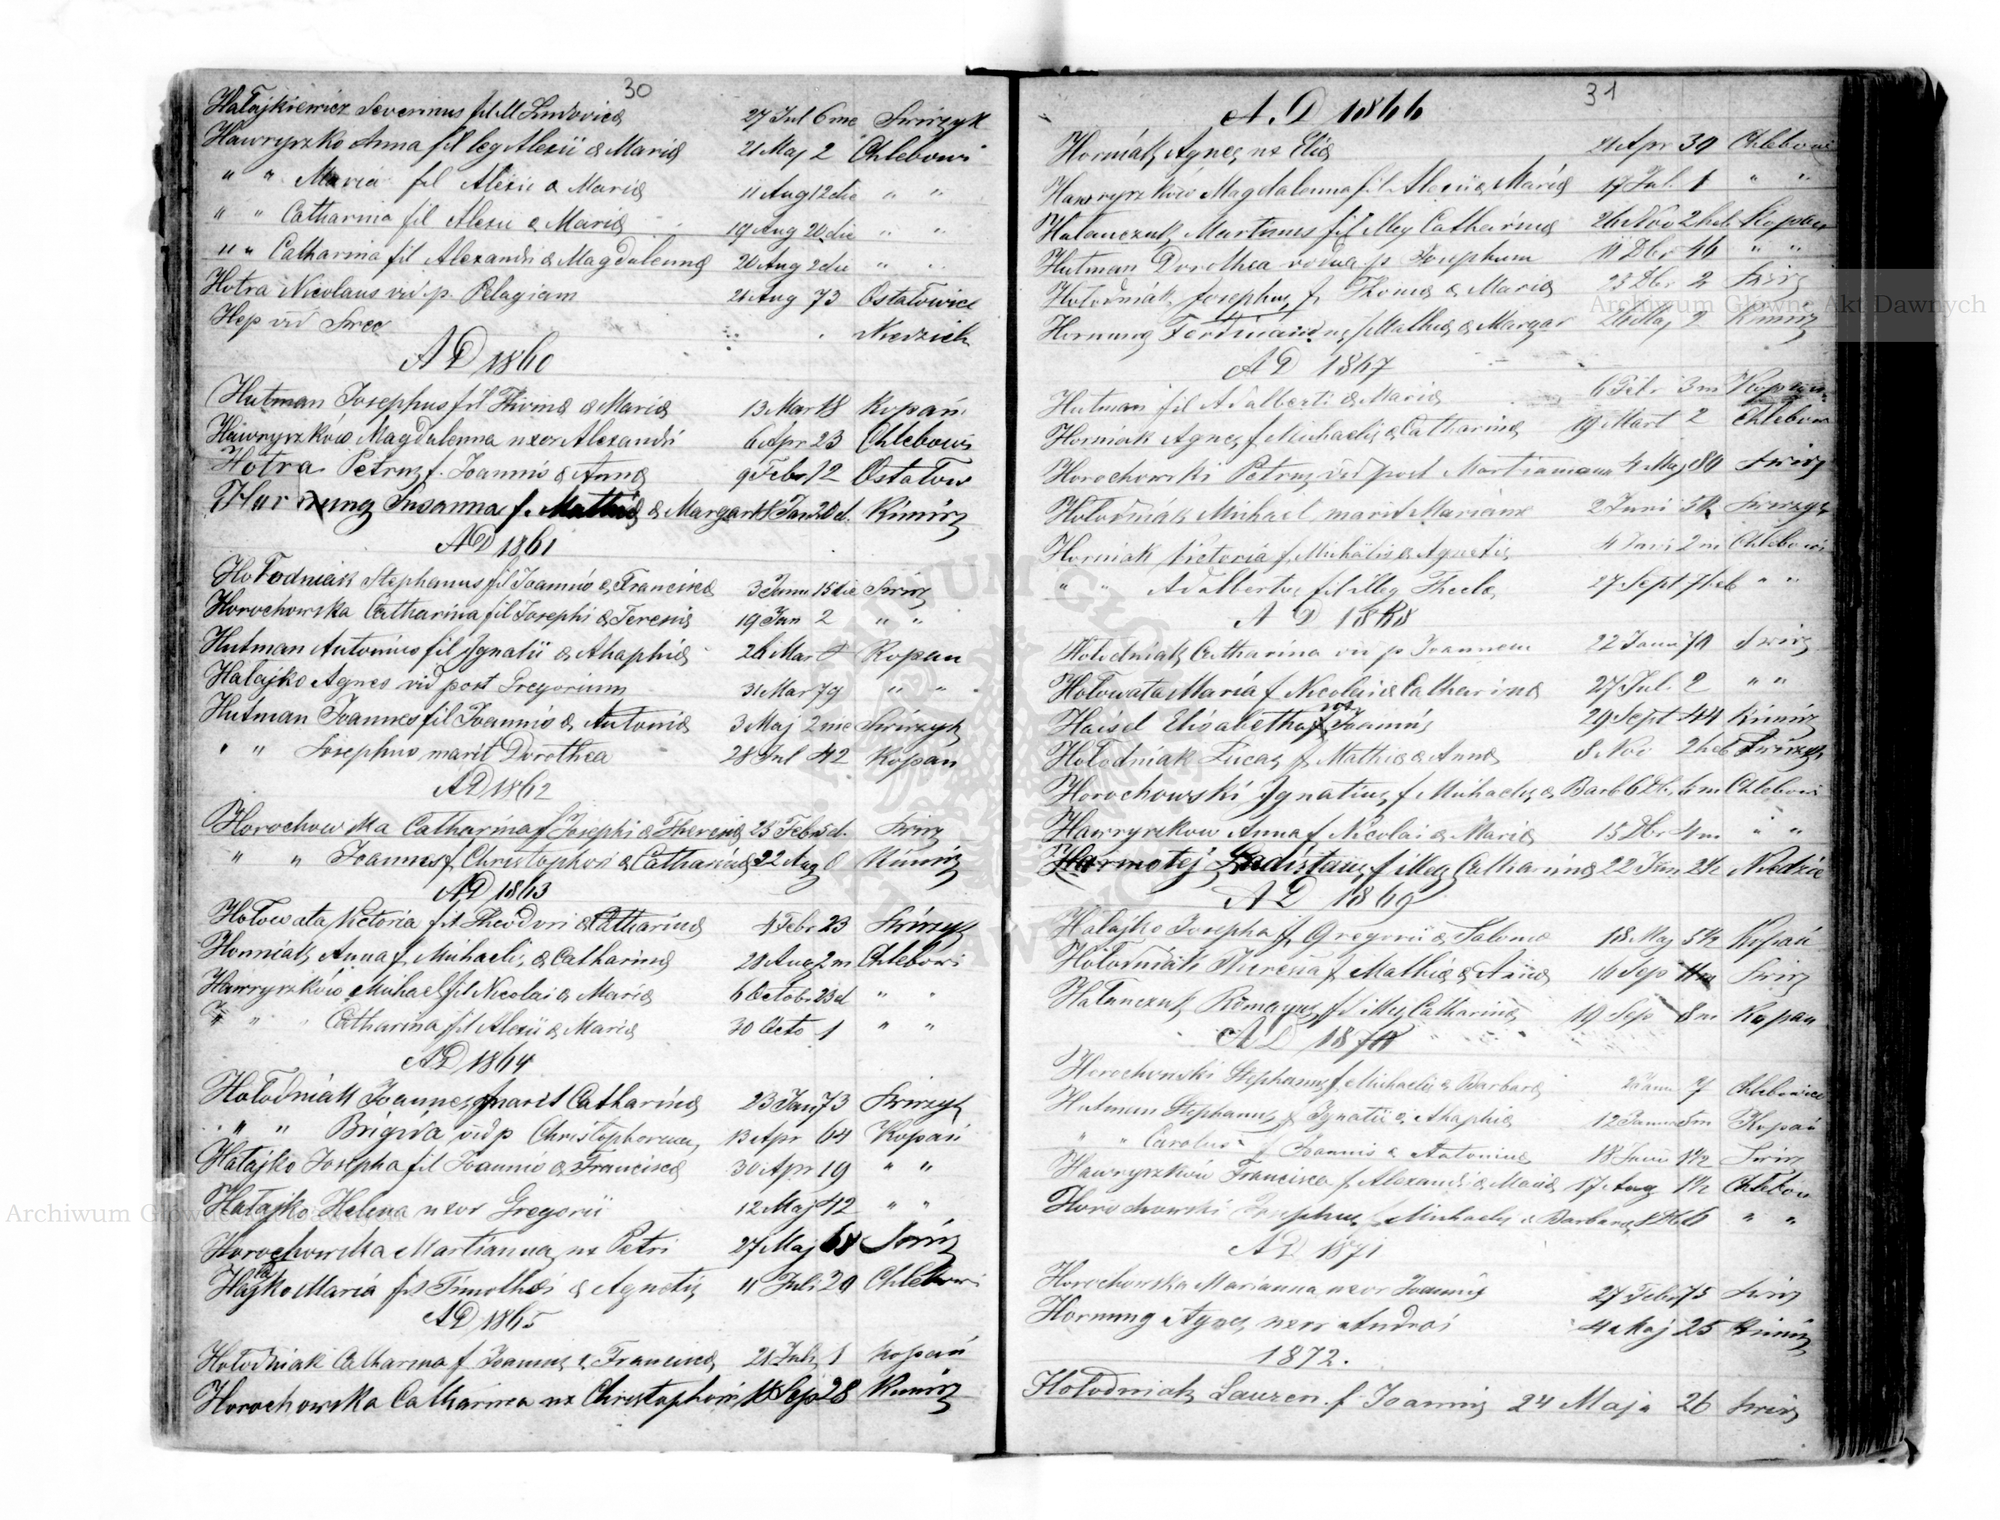 30
Hałajkiewicz Severinus fil M Ludovica 27 Jul 6 me Swirzyk
Hawryszko Anna fil leg Alexii & Maria 21 Maj 2 Chlebowi
" " Maria fil Alexii & Maria 11 Aug 12 die " "
" " Catharina fil Alexii & Maria 19 Aug 20 die " "
" " Catharina fil Alexandri & Magdalenna 20 Aug 2 die " "
Hotra Nicolaus vid p. Pelagiam 21 Aug 73 Ostałowice
Hep vid Niedzieli
AD 1860
Hutman Josephus fil Thoma & Maria 13 Mar 18 Kopań
Hawryszków Magdalenna uxor Alexandri 6 Apr 23 Chlebowi
Hotra Petrus f. Joannis & Anna 9 Febr 12 Ostałow
Hornung Susanna f. Mathia & Margar Jan 20 d. Kimirz
AD 1861
Hołodniak Stephanus fil Joannis & Francisca 3 Janu 15 die Swirz
Horochowska Catharina fil Josephi & Teresia 19 Jan 2 " "
Hutman Antonius fil Ignatii & Ahaphia 26 Mar Kopan
Hałajko Agnes vid post Gregorium 31 Mar 79 " "
Hutman Joannes fil Joannis & Antonia 3 Maj 2 me Swirzyk
" " Josephus marit Dorothea 28 Jul 42 Kopań
AD 1862
Horochowska Catharina f Josephi & Theresia 25 Febr d. Swirz
" " Joannes f. Christophori & Catharina 22 Aug Kimirz
AD 1863
Hołowata Victoria fil Theodori & Catharina 4 Febr 23 Swirzyk
Horniak Anna f. Michaelis & Catharina 28 Aug 2 m Chlebowi
Hawryszków Michael fil Nicolai & Maria 6 Octob 23 d " "
" " Catharina fil Alexii & Maria 30 Octo 1 " "
AD 1864
Hołodniak Joannes marit Catharina 23 Jan 73 Swirzyk
" " Brigida vid p Christophorum 13 Apr 64 Kopań
Hałajko Josepha fil Joannis & Francisca 30 Apr 19 " "
Hałajko Helena uxor Gregorii 12 Maj 42 " "
Horochowska Martianna ux Petri 27 Maj 68 Swirz
Hałajko Maria fil Timothei & Agnetis 11 Juli 29 Chlebowi
AD 1865
Hołodniak Catharina f. Joannis & Francisca 21 Juli 1 Kopań
Horochowska Catharina ux Christophori 18 Sep 28 Kimirz
31
A.D 1866
Horniak Agnes ux Elia 21 Apr 39 Chlebowi
Hawryszków Magdalenna fil Alexii & Maria 17 Jul. 1 " "
Hałanczuk Martinus fil illeg Catharina 26 Nov 2 heb Kopan
Hutman Dorothea vidua p Josephum 11 Dbr 46 " "
Hołodniak Josephus f. Thoma & Maria 23 Dbr 2 Swirz
Hornung Ferdinandus f Mathia & Margar 26 Maj 2 Kimirz
AD 1867
Hutman fil Adalberti & Maria 6 Febr 3 m Kopań
Horniak Agnes f Michaelis & Catharina 19 Mart 2 Chlebow
Horochowski Petrus vid post Martiannam 4 Maj 80 Swirz
Hołodniak Michael marit Marianna 2 Juni 50 Swirzyk
Horniak Victoria f Michaelis & Agnetis 4 Juni 2 m Chlebowi
" " Adalbertus fil illeg Thecla 27 Sept 7 heb " "
AD 1868
Hołodniak Catharina vid p Joannem 22 Janu 70 Swirz
Hołowata Maria f Nicolai & Catharina 27 Jul. 2 " "
Haisel Elisabetha Joannis 29 Sept 44 Kimirz
Hołodniak Lucas f. Mathia & Anna 8 Nov 2 heb Swirzyk
Horochowski Ignatius f Michaelis & Barb 6 Dbr 4 m Chlebowi
Hawryszkow Anna f. Nicolai & Maria 15 Dbr 4 m " "
Harmotej Ladislaus f illeg Catharina 22 Jan 2½ Niedzie
AD 1869
Hałajko Josepha f. Gregorii & Salome 18 Maj 5½ Kopań
Hołodniak Theresia f Mathia & Anna 10 Sep Swirz
Hałanczuk Romanus f illeg Catharina 19 Sep 8 m Kopan
AD 1870
Horochowski Stephanus f. Michaelis & Barbara Janu 7 Chlebowice
Hutman Stephanus f Ignatii & Ahaphia 12 Janu 5 m Kopań
" " Carolus f Joannis & Antonina 18 Juni 1½ Swirz
Hawryszków Francisca f. Alexandri & Maria 17 Aug 1½ Chlebow
Horochowski Josephus f Michaelis & Barbara 6 " "
AD 1871
Horochowska Marianna uxor Joannis 27 Febr 75 Swirz
Hornung Agnes uxor Andrei 4 Maj 25 Kimirz
1872.
Hołodniak Lauren. f. Joannis 24 Maja 26 Swirz
Archiwum Główne Akt Dawnych